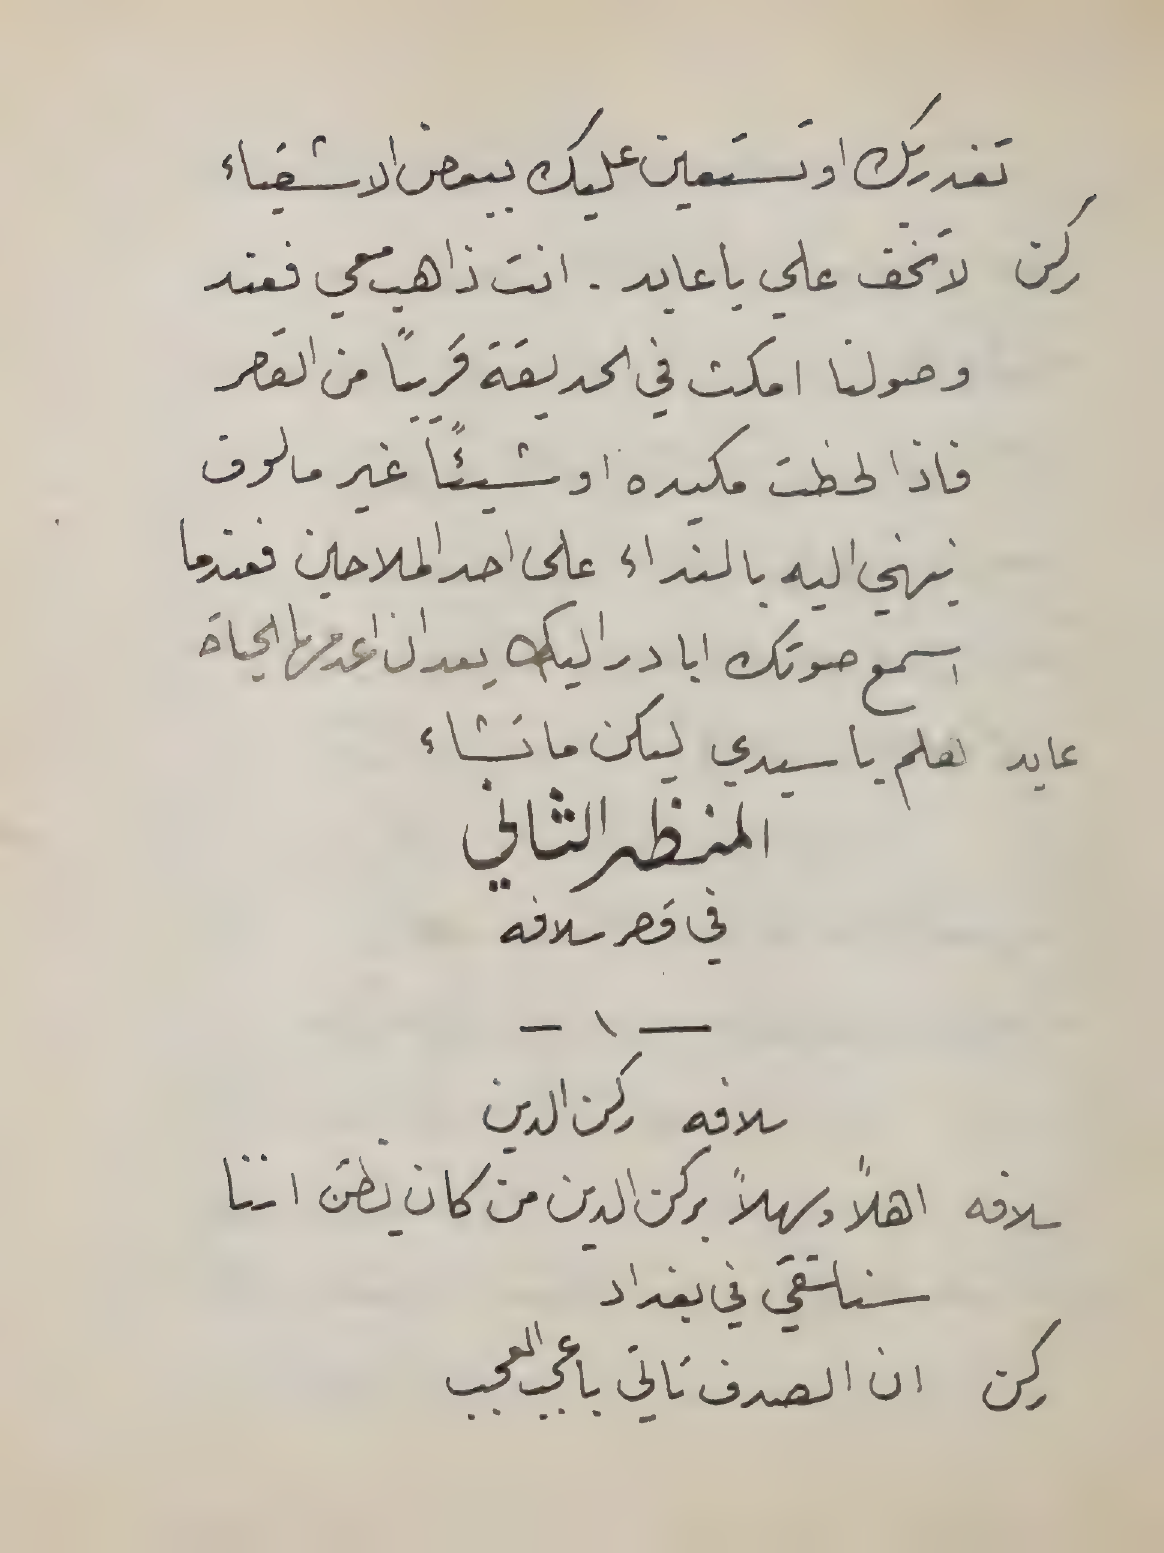 تغدر بك او تستعين عليك ببعض الاشقياء
ركن لا تخف علي يا عابد . انت ذاهب معي فعند
وصولنا امكث في الحديقة قريبًا من القصر
فاذا لحظت مكيده او شيئًا غير مالوف
نبهني اليه بالنداء على احد الملاحين فعندما
اسمع صوتك ابادر اليك بعد ان اعدمها الحياة
عابد نعلم يا سيدي ليكن ما تشاء
المنظر الثاني
في قصر سلافه
— ١ —
سلافه ركن الدين
سلافه اهلاً وسهلاً بركن الدين من كان يظن اننا
سنلتقي في بغداد
ركن ان الصدف تاتي باعجب العجب